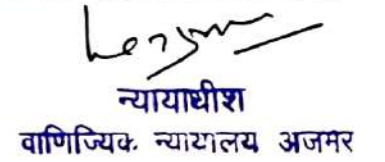 न्यायाधीश
वाणिज्यिक न्यायालय अजमर